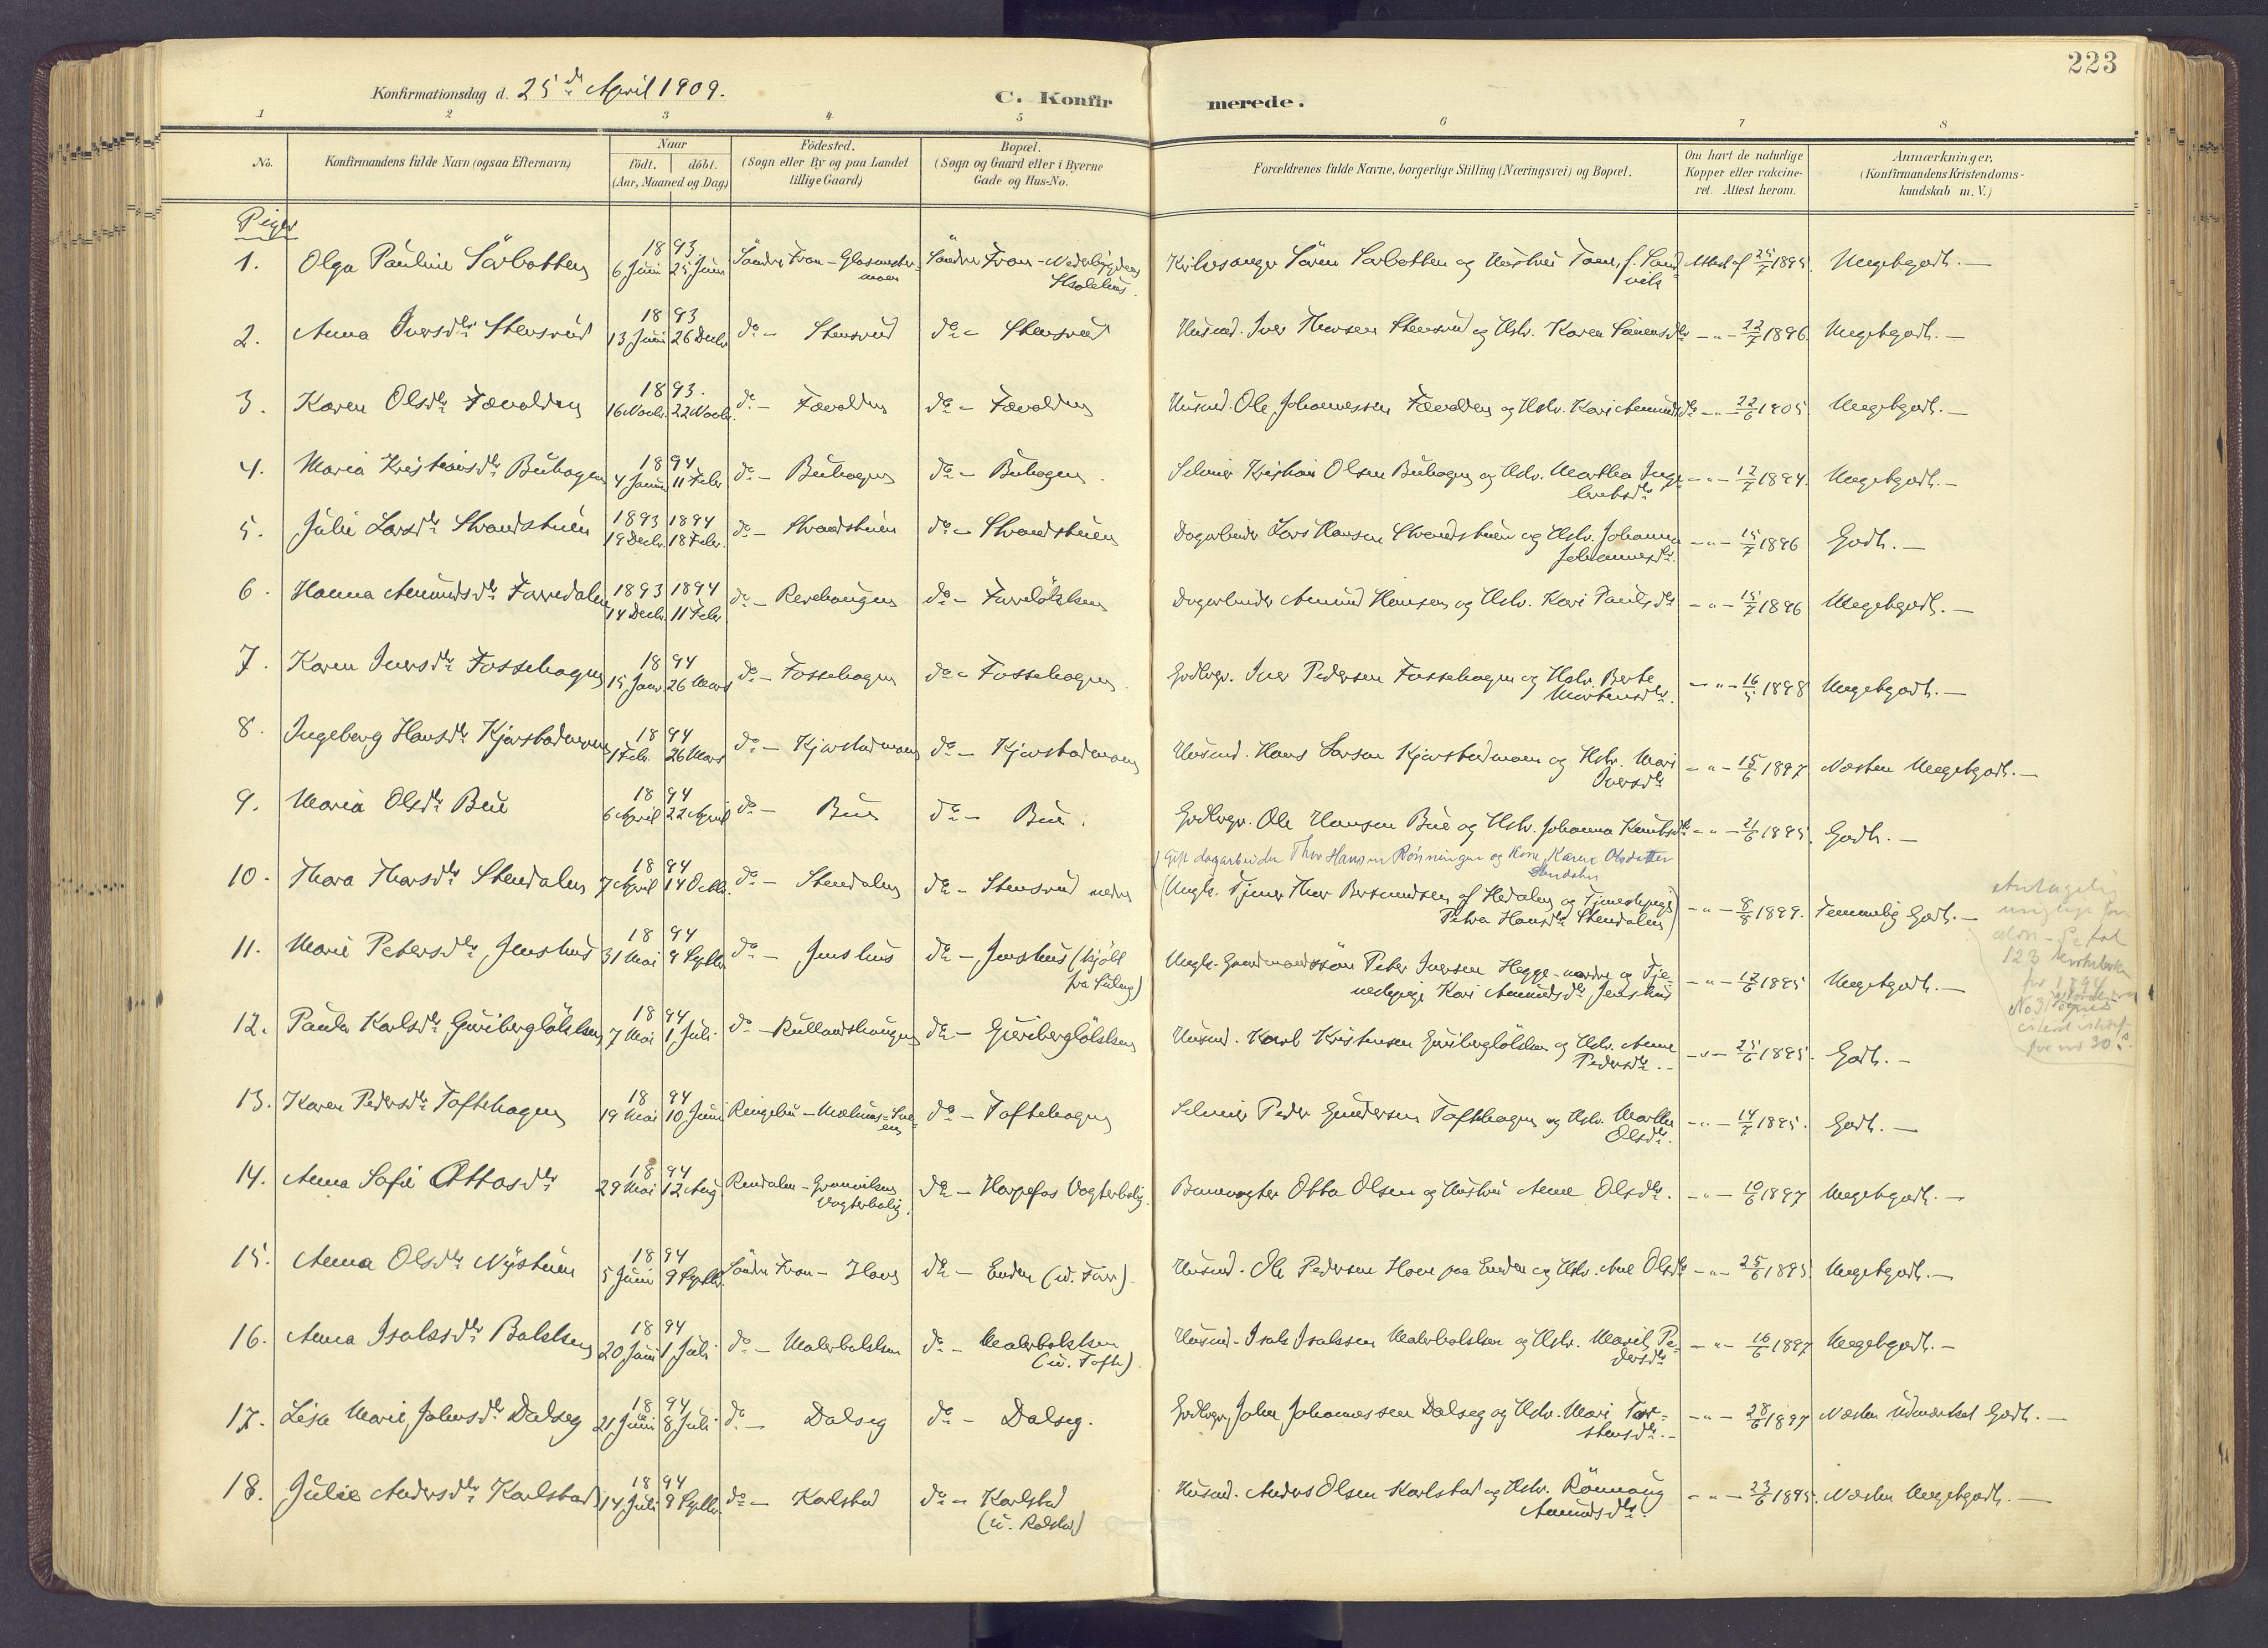 223
Konfirmationsdag d. 25de April 1909.
C. Konfirmerede.
1 2 3 4 5 6 7 8
No. Konfirmandens fulde Navn (ogsaa Efternavn) Naar födt. döbt. (Aar, Maaned og Dag) Födested. (Sogn eller By og paa Landet tillige Gaard) Bopæl. (Sogn og Gaard eller i Byerne Gade og Hus-No. Forældrenes fulde Navne, borgerlige Stilling (Næringsvei) og Bopæl. Om havt de naturlige Kopper eller vakcineret. Attest herom. Anmærkninger, (Konfirmandens Kristendomskundskab m. V.)
Piger
1. Olga Pauline Sörbotten 1893 6 Juni 25 Juni Söndre Fron - Glasmestermoen Söndre Fron - Nederbygdens Skolehus. Kirkesanger Sören Sorbotten og Hustru Tone, f. Sandvik Attest af 25/7 1895. Megetgodt. -
2. Anna Iversdtr Stensrud 1893 13 Juni 26 Decbr do - Stensrud do - Stensrud Husmd. Iver Thorsen Stensrud og Hstr. Karen Sörensdtr - " - 22/7 1896. Megetgodt. -
3. Karen Olsdtr Fævolden 1893. 16 Novbr. 22 Novbr. do - Fævolden do - Fævolden Husmd. Ole Johannessen Fævolden og Hstr. Kari Amundsdtr - " - 22/6 1905 Megetgodt. -
4. Maria Kristiansdtr Buhagen 1894 4 Januar 11 Febr do - Buhagen do - Buhagen. Selveier Kristian Olsen Buhagen og Hstr. Marthea Ingebretsdtr - " - 12/7 1894. Megetgodt. -
5. Julie Larsdtr Strandstuen 1893 1894 19 Decbr. 18 Febr. do - Strandstuen do - Strandstuen Dagarbeider Lars Hansen Strandstuen og Hstr. Johanna Johannesdtr. - " - 15/7 1896 Godt. -
6. Hanna Amundsdtr Furredalen 1893 1894 14 Decbr. 11 Febr. do - Revehaugen do - Furelökken Dagarbeider Amund Hansen og Hstr. Kari Paulsdtr - " - 15/7 1896 Megetgodt. -
7. Karen Iversdtr Fossehagen 1894 15 Janr 26 Mars do - Fossehagen do - Fossehagen. Grdbrgr. Iver Pedersen Fossehagen og Hstr. Berte Mortensdtr. - " - 16/5 1898 Megetgodt. -
8. Ingeborg Hansdtr Kjorstadmoen 1894 1 Febr. 26 Mars do - Kjorstadmoen do - Kjorstadmoen Husmd. Hans Larsen Kjorstadmoen og Hstr. Mari Iversdtr - " - 15/6 1897 Næsten Megetgodt. -
9. Maria Olsdtr Bue 1894 6 April 22 April do - Bue do - Bue. Grdbrgr. Ole Hansen Bue og Hstr. Johanna Knutsdtr - " - 21/6 1895. Godt. -
Gift dagarbeider Thor Hansen Rönningen og Kone Karen Olsdatter Stendalen
10. Thora Thorsdtr Stendalen 1894 7 April 14 Octbr. do - Stendalen do - Stensrud nedre (Ungk. Tjener Thor Bersvendsen af Hedalen og Tjenestepige Petra Hansdtr Stendalen) - " - 8/8 1899. Temmelig Godt. -
11. Marie Petersdtr Jenshus 1894 31 Mai 9 Septbr. do - Jenshus do - Jenshus (kjöbt fra ) Ungk. Gaardmandssön Peter Iversen Hegge-nordre og Tjenestepige Kari Amundsdtr Jenshus - " - 12/6 1895 Megetgodt. -
12. Paula Karlsdtr Guriberglökken 1894 7 Mai 1 Juli do - Rullandshaugen do - Guriberglökken Husmd. Karl Kristensen Guriberglökken og Hstr. Anne Pedersdtr. - - " - 25/6 1895. Godt. -
Antagelig
123
for 1894
No 31
30
13. Karen Pedersdtr Toftehagen 1894 19 Mai 10 Juni Ringebu - do - Toftehagen Selveier Peder Gundersen Toftehagen og Hstr. Marthe Olsdtr. - " - 14/7 1895. Godt. -
14. Anna Sofie Ottosdtr 1894 29 Mai 12 Aug Rendalen - Vogterbolig. do - Harpefos Vogterbolig. Banevogter Otto Olsen og Hustru Anne Olsdtr. - " - 10/6 1897 Megetgodt. -
15. Anna Olsdtr Nystuen 1894 5 Juni 9 Septbr. Söndre Fron - Hove do - Enden (u. Furr). Husmd. Ole Pedersen Hove paa Enden og Hstr. Ane Olsdtr - " - 25/6 1895. Megetgodt. -
16. Anna Isaksdtr Bakken 1894 20 Juni 1 Juli do - Malerbakken do - Malerbakken (u. Tofte). Husmd. Isak Isaksen Malerbakken og Hstr. Marit Pedersdtr - " - 16/6 1897 Megetgodt. -
17. Lisa Marie Johnsdtr Dalseg 1894 21 Juni 8 Juli do - Dalseg do - Dalseg. Grdbrgr. John Johannessen Dalseg og Hstr. Mari Torstensdtr. - - " - 28/6 1897 Næsten Udmærket Godt. -
18. Julie Andersdtr Karlstad 1894 14 Juli 9 Septbr. do - Karlstad do - Karlstad (u. Kolstad) Husmd. Anders Olsen Karlstad og Hstr. Rönnaug Amundsdtr. - " - 23/6 1895. Næsten Megetgodt. -